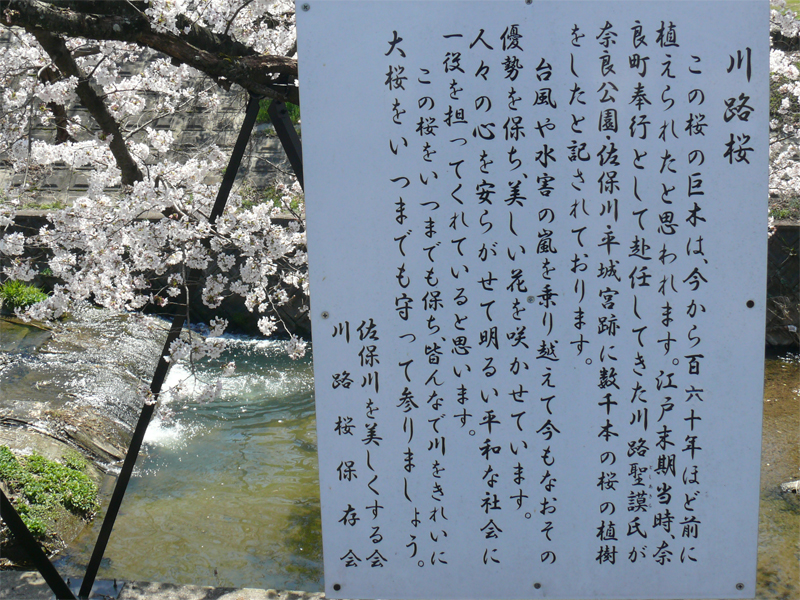 川路桜
この桜の巨木は、今から百六十年ほど前に
植えられたと思われます。江戸末期当時、奈
良町奉行として赴任してきた川路聖謨氏が
奈良公園・佐保川・平城宮跡に数千本の桜の植樹
をしたと記されております。
台風や水害の嵐を乗り越えて今もなおその
優勢を保ち、美しい花を咲かせています。
人々の心を安らがせて明るい平和な社会に
一役を担ってくれていると思います。
この桜をいつまでも保ち、皆んなで川をきれいに
大桜をいつまでも守って参りましょう。
佐保川を美しくする会
川路桜保存会